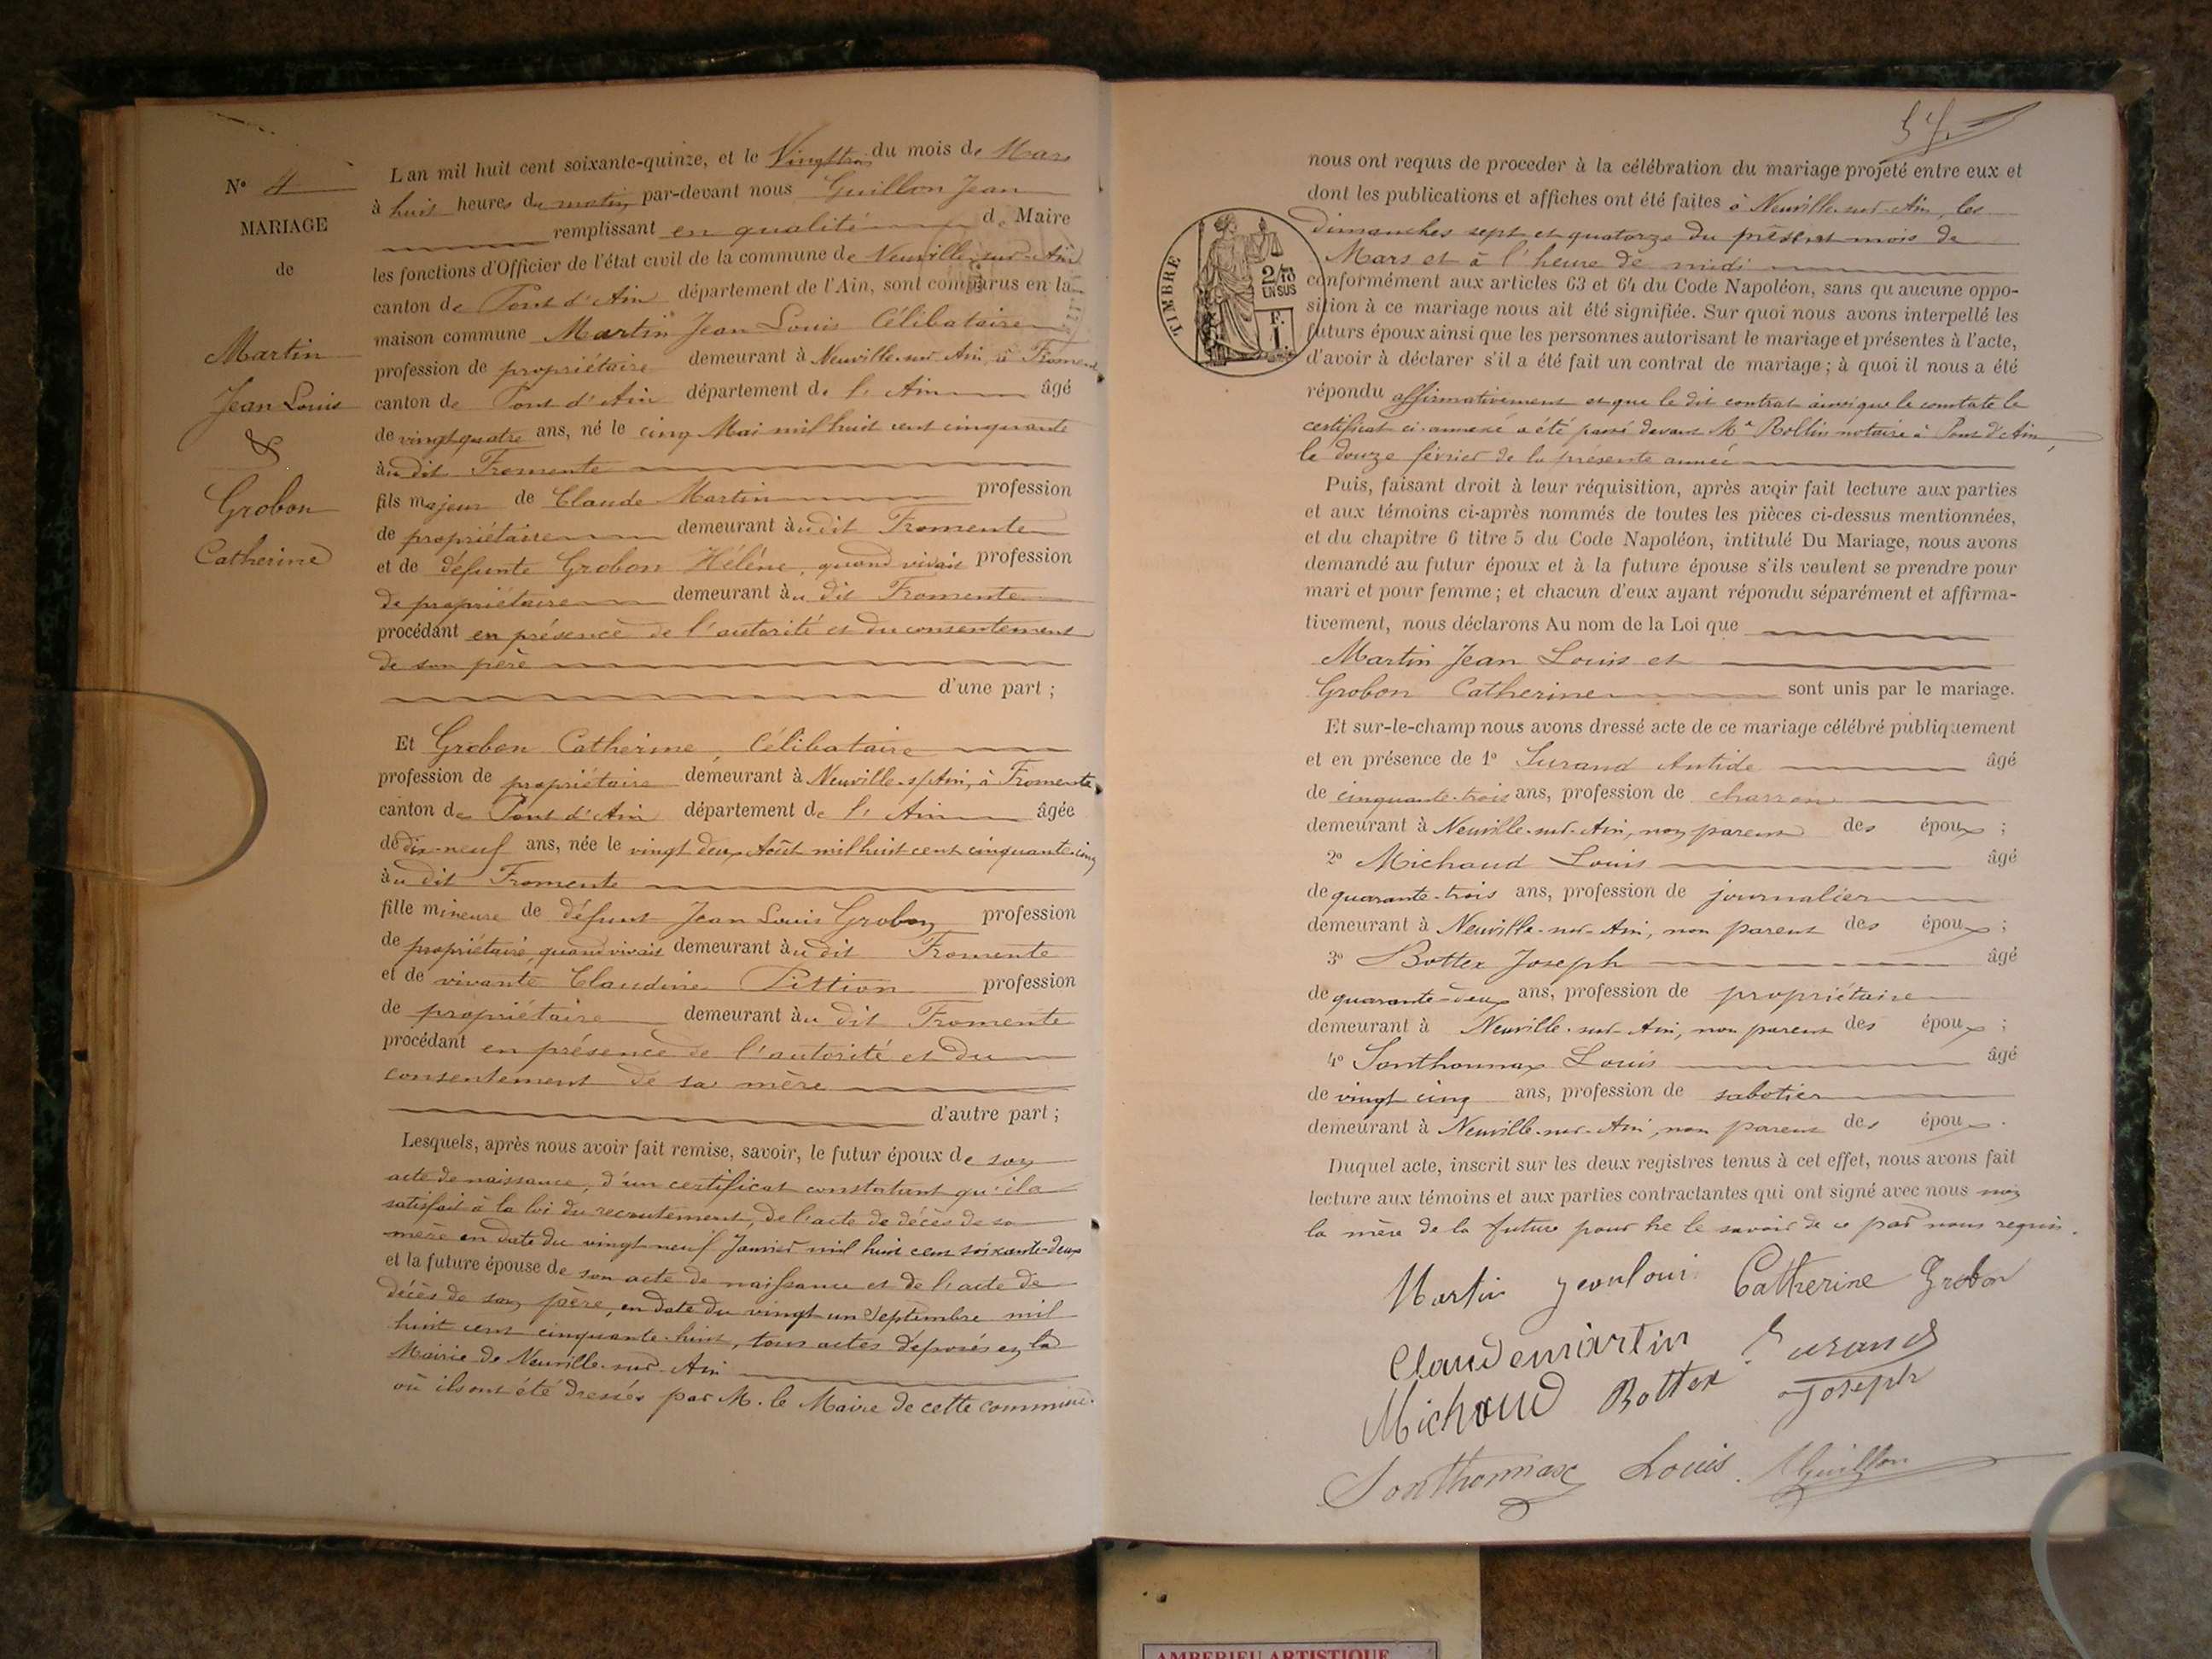 N° 4
MARIAGE
de
Martin
Jean Louis
&
Grobon
Catherine
L'an mil huit cent soixante-quinze, et le Vingttrois du mois de Mars
à huit heures du matin, par-devant nous Guillon Jean
remplissant en qualité de Maire
les fonctions d'Officier de l'état civil de la commune de Neuville-sur-Ain
canton de Pont d'Ain département de l'Ain, sont comparus en la
maison commune Martin Jean Louis Célibataire
profession de propriétaire demeurant à Neuville-sur-Ain, à Fromente
canton de Pont d'Ain département de l'Ain âgé
de vingt quatre ans, né le cinq Mai mil huit cent cinquante
au dit Fromente
fils majeur de Claude Martin profession
de propriétaire demeurant au dit Fromente
et de défunte Grobon Hélène, quand vivait profession
de propriétaire demeurant au dit Fromente
procédant en présence de l'autorité et du consentement
de son père
d'une part ;
Et Grobon Catherine, Célibataire
profession de propriétaire demeurant à Neuville-s/Ain, à Fromente
canton de Pont d'Ain département de l'Ain âgée
de dix-neuf ans, née le vingt deux Août mil huit cent cinquante-cinq
au dit Fromente
fille mineure de défunt Jean Louis Grobon profession
de propriétaire, quand vivait demeurant au dit Fromente
et de vivante Claudine Pittion profession
de propriétaire demeurant au dit Fromente
procédant en présence de l'autorité et du
consentement de sa mère
d'autre part ;
Lesquels, après nous avoir fait remise, savoir, le futur époux de son
acte de naissance, d'un certificat constatant qu'il a
satisfait à la loi du recrutement, de l'acte de décès de sa
mère en date du vingt neuf Janvier mil huit cent soixante-deux
et la future épouse de son acte de naissance et de l'acte de
décès de son père, en date du vingt un Septembre mil
huit cent cinquante-huit, tous actes déposés en la
Mairie de Neuville-sur-Ain
où ils ont été dressés par M. le Maire de cette commune.
54
nous ont requis de proceder à la célébration du mariage projeté entre eux et
dont les publications et affiches ont été faites à Neuville-sur-Ain, les
dimanches sept et quatorze du présent mois de
Mars et à l'heure de midi
TIMBRE
2/10
EN SUS
F.
1.
conformément aux articles 63 et 64 du Code Napoléon, sans qu'aucune oppo-
sition à ce mariage nous ait été signifiée. Sur quoi nous avons interpellé les
futurs époux ainsi que les personnes autorisant le mariage et présentes à l'acte,
d'avoir à déclarer s'il a été fait un contrat de mariage ; à quoi il nous a été
répondu affirmativement et que le dit contrat ainsi que le constate le
certificat ci-annexé a été passé devant Me Rollin notaire à Pont d'Ain,
le douze février de la présente année
Puis, faisant droit à leur réquisition, après avoir fait lecture aux parties
et aux témoins ci-après nommés de toutes les pièces ci-dessus mentionnées,
et du chapitre 6 titre 5 du Code Napoléon, intitulé Du Mariage, nous avons
demandé au futur époux et à la future épouse s'ils veulent se prendre pour
mari et pour femme ; et chacun d'eux ayant répondu séparément et affirma-
tivement, nous déclarons Au nom de la Loi que
Martin Jean Louis et
Grobon Catherine sont unis par le mariage.
Et sur-le-champ nous avons dressé acte de ce mariage célébré publiquement
et en présence de 1° Surand Antide âgé
de cinquante-trois ans, profession de charron
demeurant à Neuville-sur-Ain, non parent des époux ;
2° Michaud Louis âgé
de quarante-trois ans, profession de journalier
demeurant à Neuville-sur-Ain, non parent des époux ;
3° Bottex Joseph âgé
de quarante-deux ans, profession de propriétaire
demeurant à Neuville-sur-Ain, non parent des époux ;
4° Sonthonnax Louis âgé
de vingt cinq ans, profession de sabotier
demeurant à Neuville-sur-Ain, non parent des époux.
Duquel acte, inscrit sur les deux registres tenus à cet effet, nous avons fait
lecture aux témoins et aux parties contractantes qui ont signé avec nous non
la mère de la future pour ne le savoir de ce par nous requis.
Martin jeanlouis Catherine Grobon
Claudemartin Surand
Michaud Bottex Joseph
Sonthonnax Louis. Guillon
AMBERIEU ARTISTIQUE